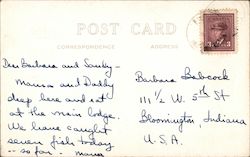 POST CARD
CORRESPONDENCE
ADDRESS
Dear Barbara and Sandy -
Mama and Daddy
sleep here and eat
at the main lodge.
We have caught
seven fish today
-- so far. - Mama
3 3
Barbara Babcock
111 1/2 W. 5th St
Bloomington, Indiana
U.S.A.